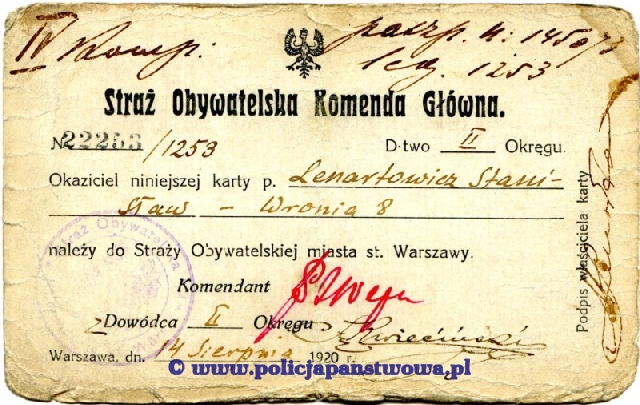 IV Komp.
paszp. N: 1450/77
leg. 1253
Straż Obywatelska Komenda Główna.
№ 22253/1253 D-two II Okręgu.
Okaziciel niniejszej karty p. Lenartowicz Stani-
sław – Wronia 8
należy do Straży Obywatelskiej miasta st. Warszawy.
Komendant
z Dowódca II Okręgu Kwieciński
Warszawa, dn. 14 Sierpnia 1920 r.
Podpis właściciela karty
Straż Obywatelska
© www.policjapanstwowa.pl